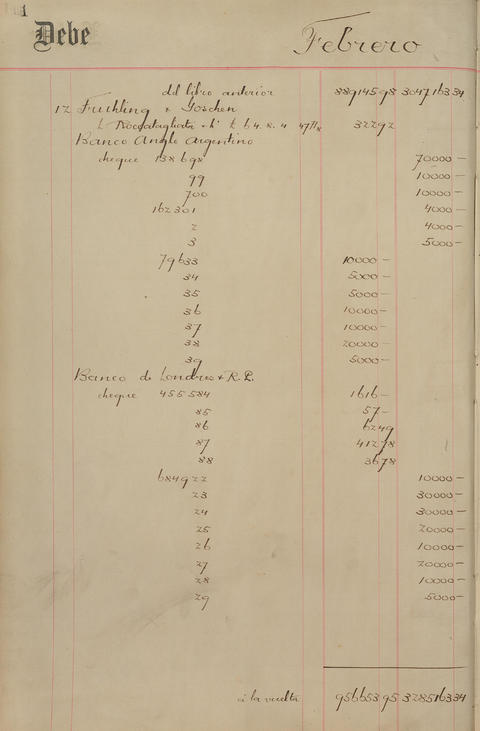 1
Debe Febrero
del libro anterior 889145 98 3047163 34
12 Fruhling & Goschen
£ Roccatagliata £ 64. 8. 4 322 92
Banco Anglo Argentino
cheque 138698 70000 —
99 10000 —
700 10000 —
162301 4000 —
2 4000 —
3 5000 —
79633 10000 —
34 5000 —
35 5000 —
36 10000 —
37 10000 —
38 20000 —
39 5000 —
Banco de Londres & R. P.
cheque 455584 1616 —
85 57 —
86 62 49
87 412 78
88 36 78
684922 10000 —
23 30000 —
24 30000 —
25 20000 —
26 10000 —
27 20000 —
28 10000 —
29 5000 —
á la vuelta 956653 95 3285163 34